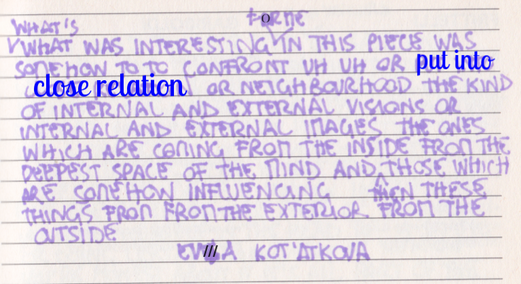 WHAT'S FOR ME
WHAT WAS INTERESTING IN THIS PIECE WAS
SOMEHOW TO TO CONFRONT UH UH OR put into
close relation OR NEIGHBOURHOOD THE KIND
OF INTERNAL AND EXTERNAL VISIONS OR
INTERNAL AND EXTERNAL IMAGES THE ONES
WHICH ARE COMING FROM THE INSIDE FROM THE
DEEPEST SPACE OF THE MIND AND THOSE WHICH
ARE SOMEHOW INFLUENCING THESE
THINGS FROM FROM THE EXTERIOR FROM THE
OUTSIDE
EVA KOT'ATKOVA